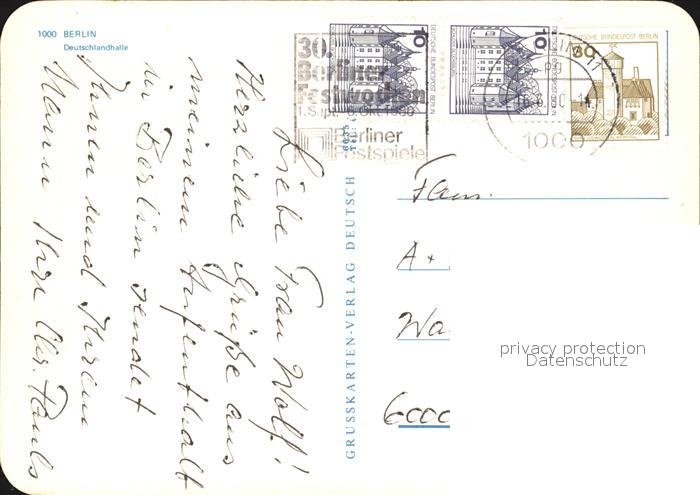 1000 BERLIN
Deutschlandhalle
Liebe Frau Wolf!
Herzliche Grüße aus
meinem Aufenthalt
in Berlin sendet
Ihnen und Ihrem
Mann Ihre
GRUSSKARTEN-VERLAG DEUTSCH
30.
Berliner
Festwochen
1. Sept. 1980
Berliner
Festspiele
10
DEUTSCHE BUNDESPOST BERLIN
10
DEUTSCHE BUNDESPOST BERLIN
30
DEUTSCHE BUNDESPOST BERLIN
BERLIN 11
1000
Fam.
A +
Wa
6000
privacy protection
Datenschutz